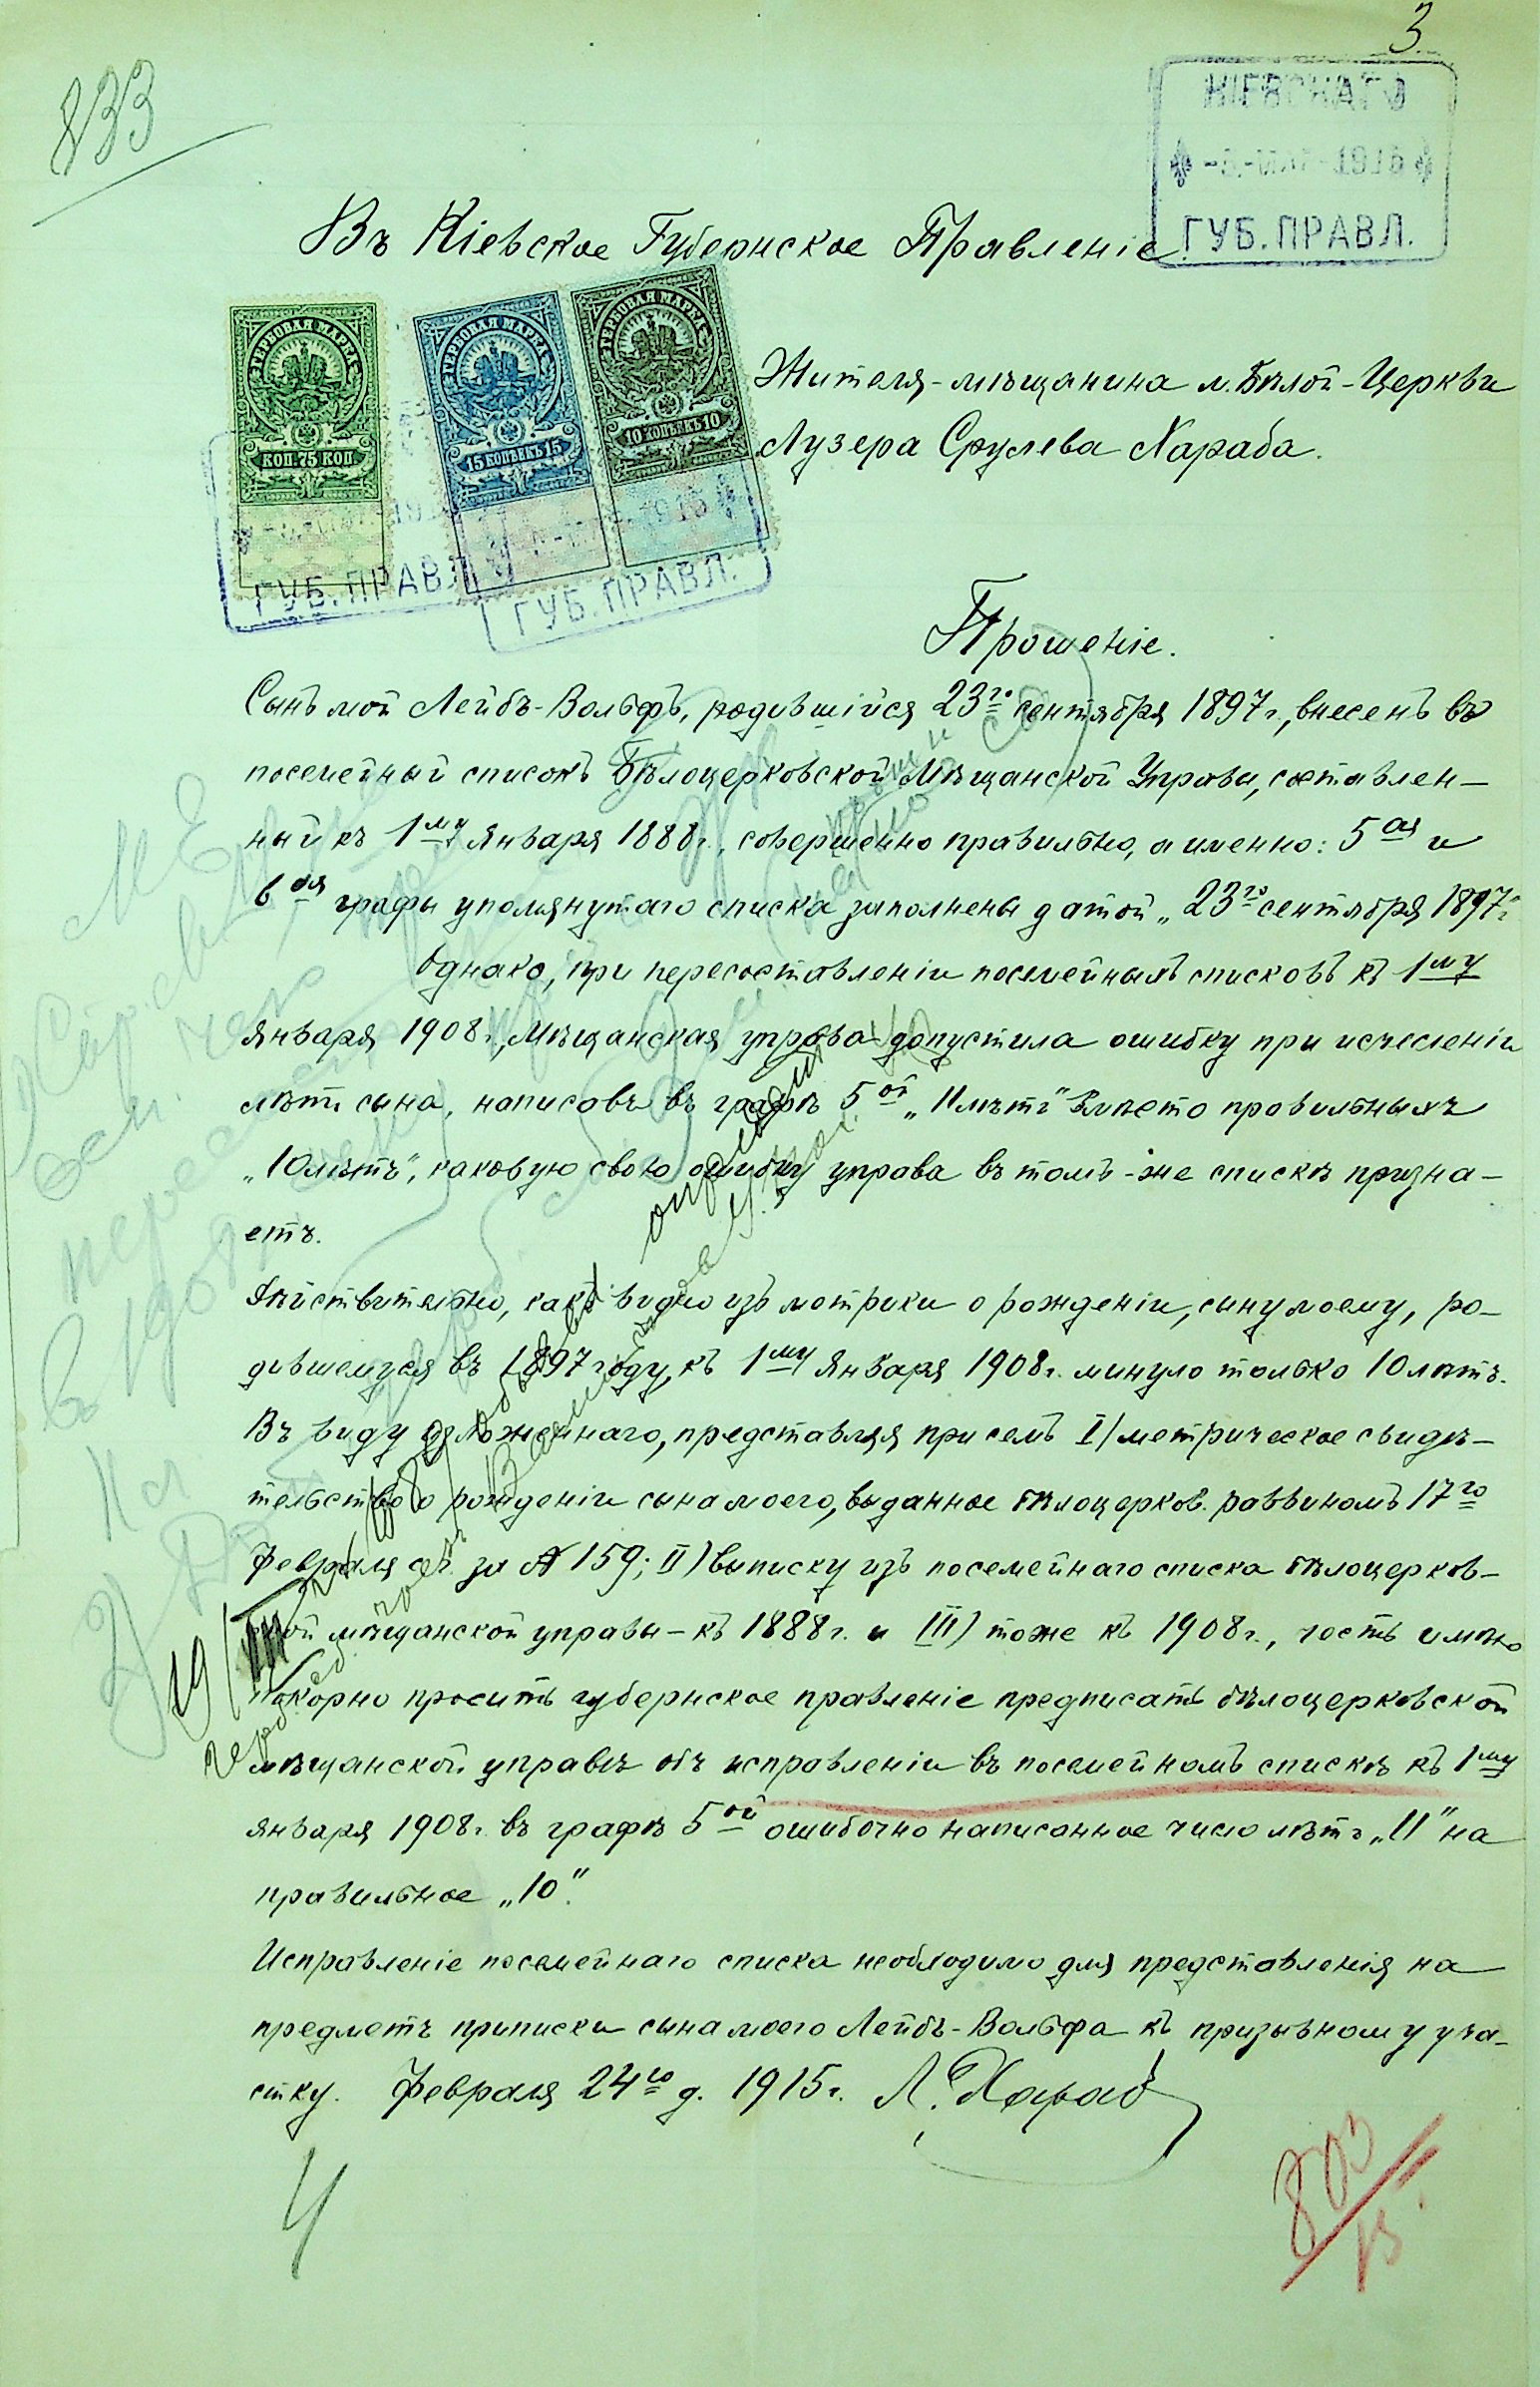 3
833
КІЕВСКАГО
-5.-МАР-1915
ГУБ. ПРАВЛ.
Въ Кіевское Губернское Правленіе
ГЕРБОВАЯ МАРКА
КОП. 75 КОП.
ГЕРБОВАЯ МАРКА
15 КОПѢЕКЪ 15
ГЕРБОВАЯ МАРКА
10 КОПѢЕКЪ 10
ГУБ. ПРАВЛ.
ГУБ. ПРАВЛ.
Жителя-мѣщанина м. Бѣлой-Церкви
Лузера Срулева Хараба.
Прошеніе.
Сынъ мой Лейбъ-Вольфъ, родившійся 23го сентября 1897г., внесенъ въ
посемейный списокъ Бѣлоцерковской Мѣщанской Управы, составлен-
ный къ 1му Января 1888г., совершенно правильно, а именно: 5ая и
6ая графы упомянутаго списка заполнены датой „23го сентября 1897г."
Однако, при пересоставленіи посемейныхъ списковъ къ 1му
Января 1908г., Мѣщанская управа допустила ошибку при исчесленіи
лѣтъ сына, написавъ въ графѣ 5ой „11 лѣтъ" вмѣсто правильныхъ
„10 лѣтъ", каковую свою ошибку управа въ томъ-же спискѣ призна-
етъ.
Дѣйствительно, какъ видно изъ метрики о рожденіи, сыну моему, ро-
дившемуся въ 1897 году, къ 1му Января 1908г. минуло только 10 лѣтъ.
Въ виду изложеннаго, представляя при семъ I) метрическое свидѣ-
тельство о рожденіи сына моего, выданное бѣлоцерков. раввиномъ 17го
Февраля с.г. за № 159; II) выписку изъ посемейнаго списка бѣлоцерков-
ской мѣщанской управы - къ 1888г. и III) тоже къ 1908г., честь имѣю
покорно просить губернское правленіе предписать бѣлоцерковской
мѣщанской управѣ объ исправленіи въ посемейномъ спискѣ къ 1му
января 1908г. въ графѣ 5ой ошибочно написанное число лѣтъ „11" на
правильное „10".
Исправленіе посемейнаго списка необходимо для представленія на
предметъ приписки сына моего Лейбъ-Вольфа къ призывному уча-
стку. Февраля 24го д. 1915г. Л. Хараб
803
15.